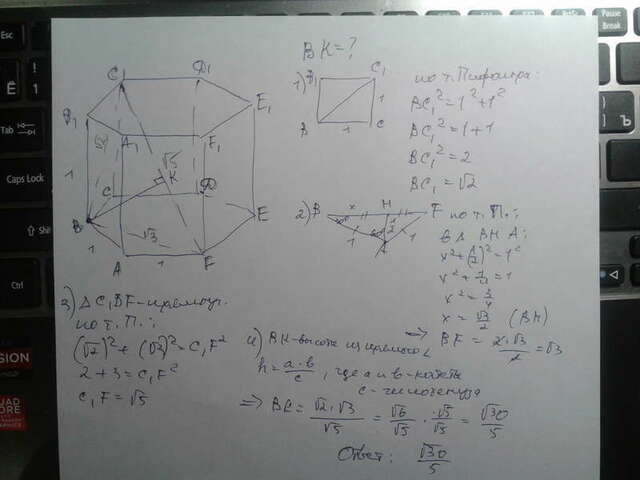 Esc
Pause
Break
Ё
1
Tab
Caps Lock
Shi
Ctrl
SSION
QUAD
CORE
BK=?
C₁ D₁
B₁ E₁
A₁ F₁
√5
K
1 √2
C D
B E
1 √3
A 1 F
1) B₁ C₁
1
B 1 C
по т. Пифагора:
BC₁² = 1² + 1²
BC₁² = 1 + 1
BC₁² = 2
BC₁ = √2
2) B x H F
1 1
A
по т. П.:
в Δ BHA:
x² + (1/2)² = 1²
x² + 1/4 = 1
x² = 3/4
x = √3/2 (BH)
⇒ BF = 2·√3/2 = √3
3) Δ C₁BF - прямоуг.
по т. П.:
(√2)² + (√3)² = C₁F²
2 + 3 = C₁F²
C₁F = √5
4) BK - высота из прямого ∠
h = a·b/c, где a и b - катеты
c - гипотенуза
⇒ BK = √2·√3/√5 = √6/√5 · √5/√5 = √30/5
Ответ: √30/5